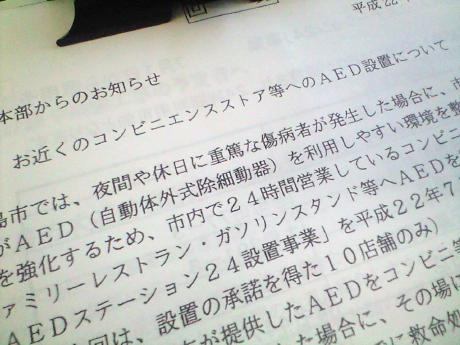 回
平成22年
本部からのお知らせ
お近くのコンビニエンスストア等へのAED設置について
島市では、夜間や休日に重篤な傷病者が発生した場合に、市
がAED(自動体外式除細動器)を利用しやすい環境を整
を強化するため、市内で24時間営業しているコンビニ
ァミリーレストラン・ガソリンスタンド等へAEDを
AEDステーション24設置事業」を平成22年7
回は、設置の承諾を得た10店舗のみ)
が提供したAEDをコンビニ等
た場合に、その場に
に救命処